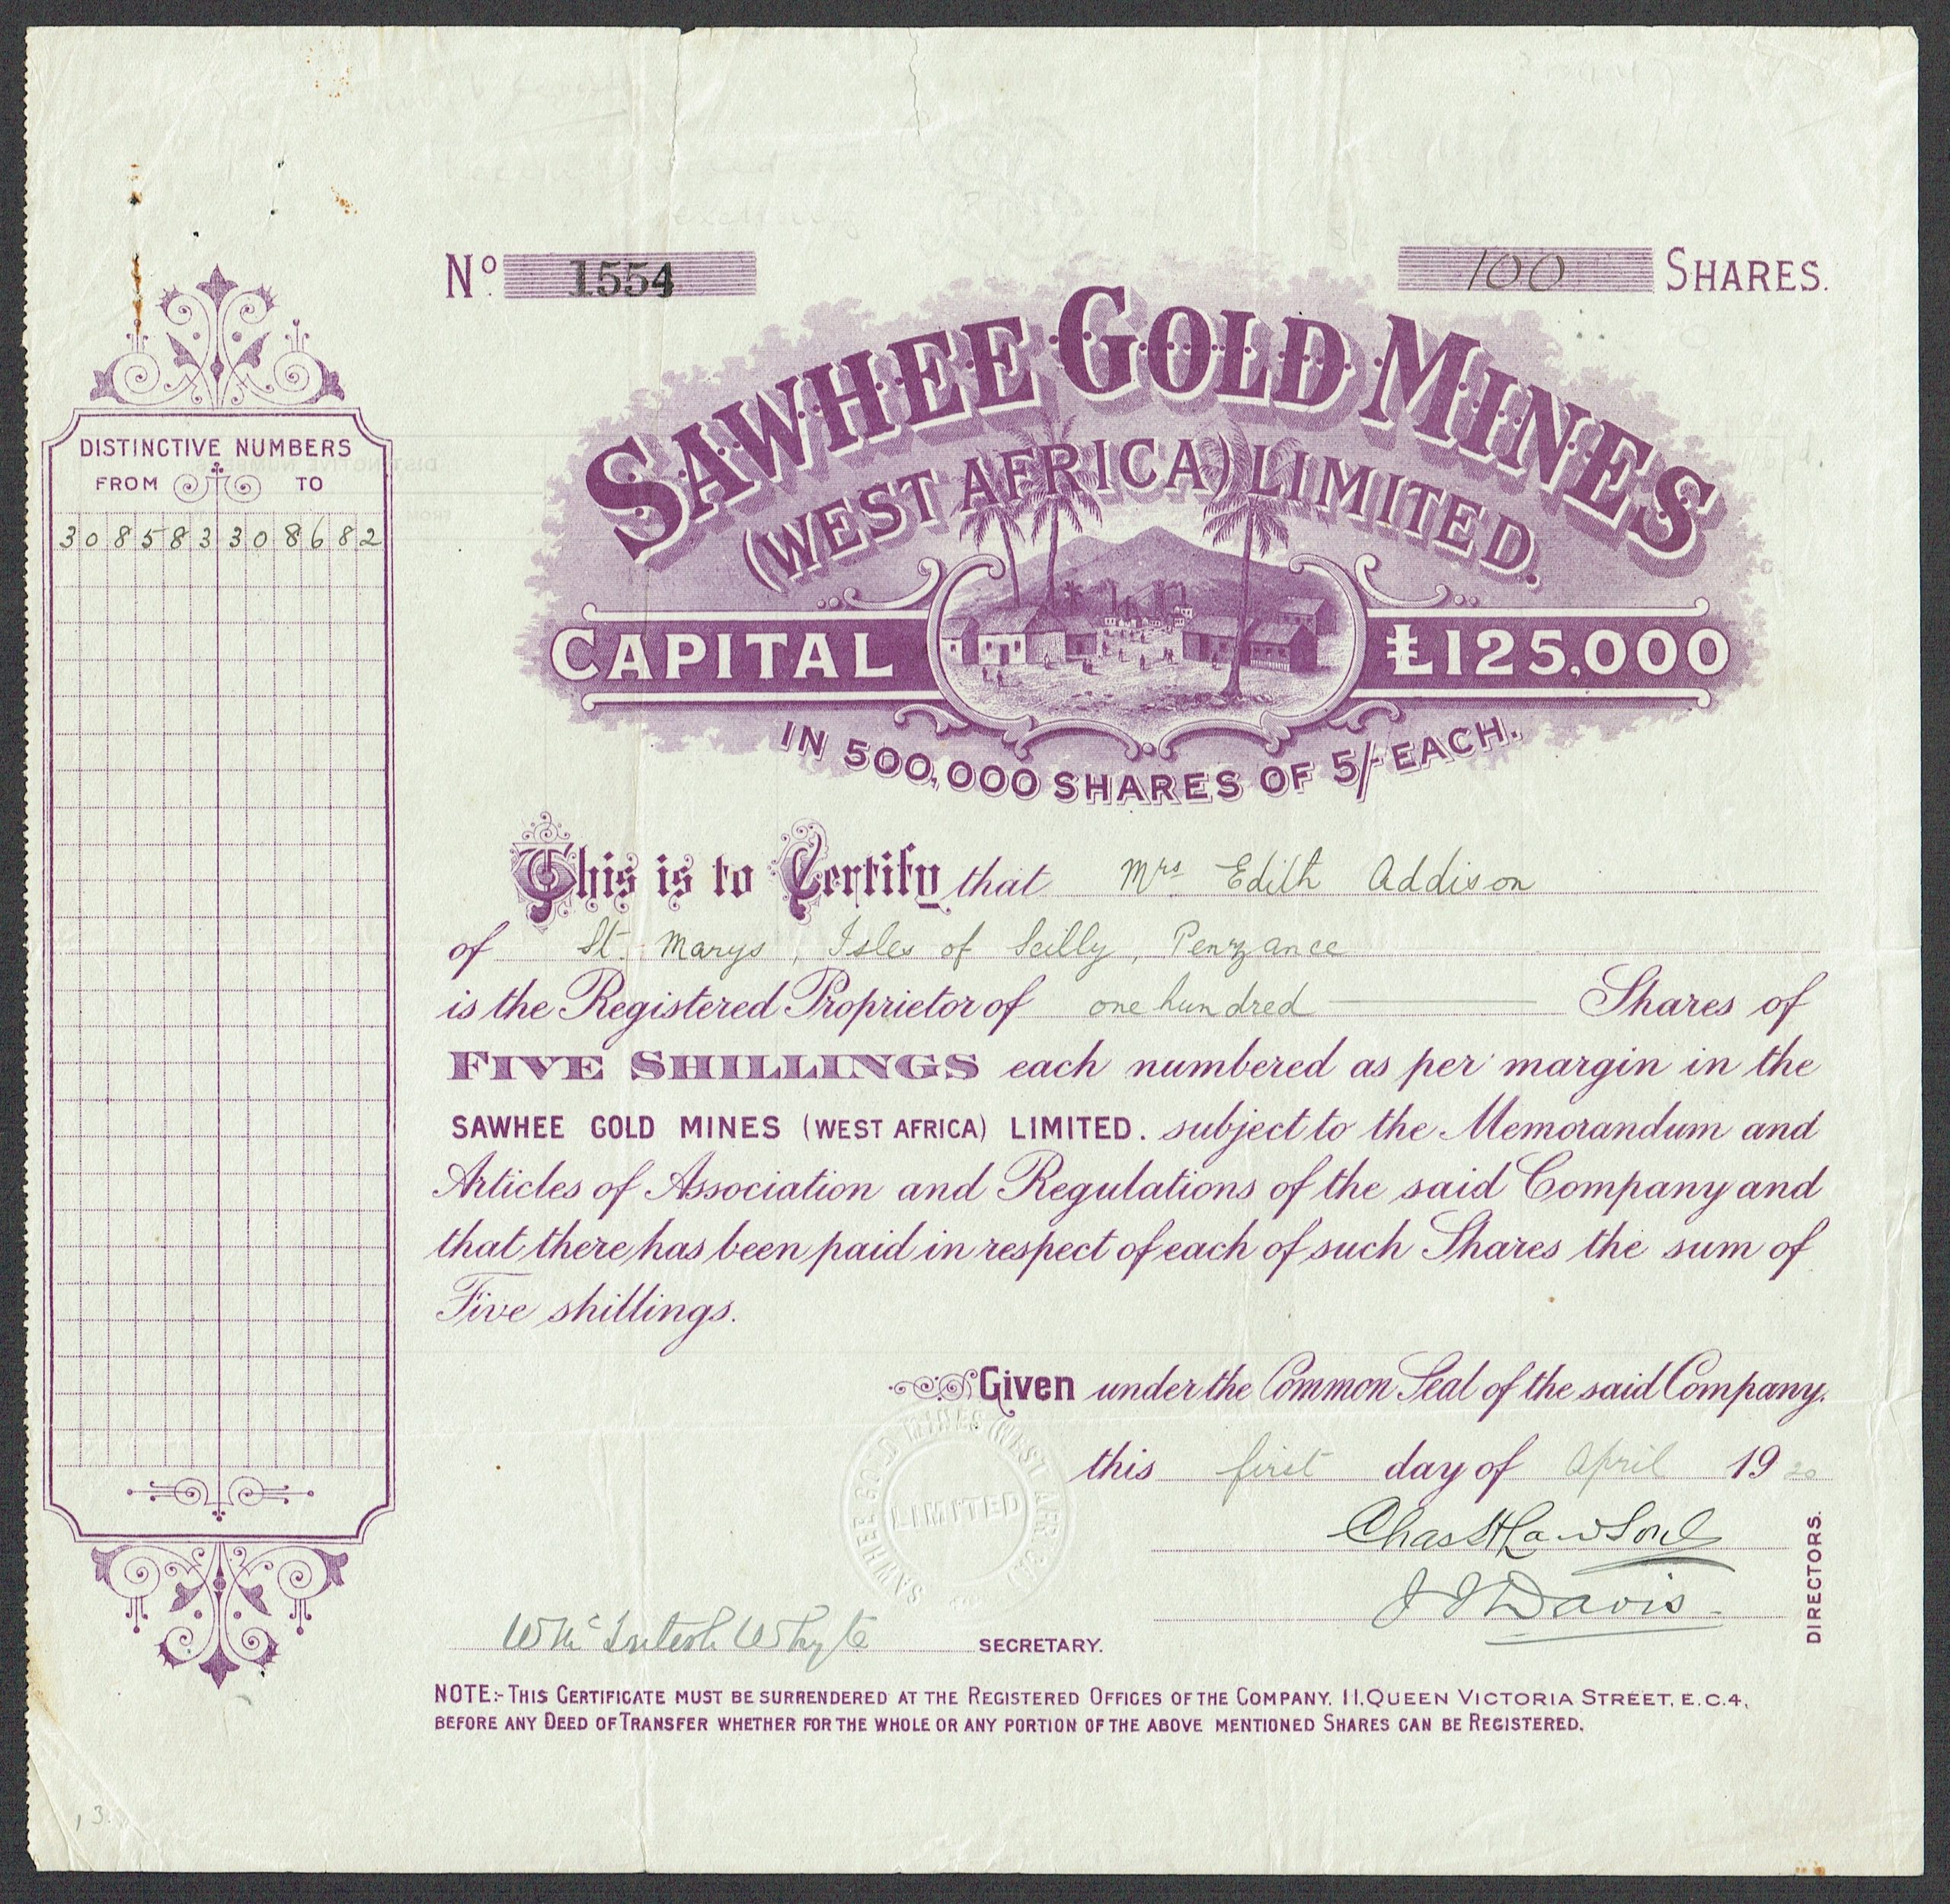 Nº 1554
100 SHARES.
SAWHEE GOLD MINES
(WEST AFRICA) LIMITED.
CAPITAL £125,000
IN 500,000 SHARES OF 5/- EACH.
DISTINCTIVE NUMBERS
FROM TO
308583 308682
This is to Certify that Mrs Edith Addison
of St. Marys, Isles of Scilly, Penzance
is the Registered Proprietor of one hundred Shares of
FIVE SHILLINGS each numbered as per margin in the
SAWHEE GOLD MINES (WEST AFRICA) LIMITED. subject to the Memorandum and
Articles of Association and Regulations of the said Company and
that there has been paid in respect of each of such Shares the sum of
Five shillings.
Given under the Common Seal of the said Company.
this first day of April 1920
SAWHEE GOLD MINES (WEST AFRICA)
LIMITED
J J Davis
DIRECTORS.
W McIntosh Whyte SECRETARY.
NOTE:- THIS CERTIFICATE MUST BE SURRENDERED AT THE REGISTERED OFFICES OF THE COMPANY. 11, QUEEN VICTORIA STREET, E.C.4,
BEFORE ANY DEED OF TRANSFER WHETHER FOR THE WHOLE OR ANY PORTION OF THE ABOVE MENTIONED SHARES CAN BE REGISTERED.